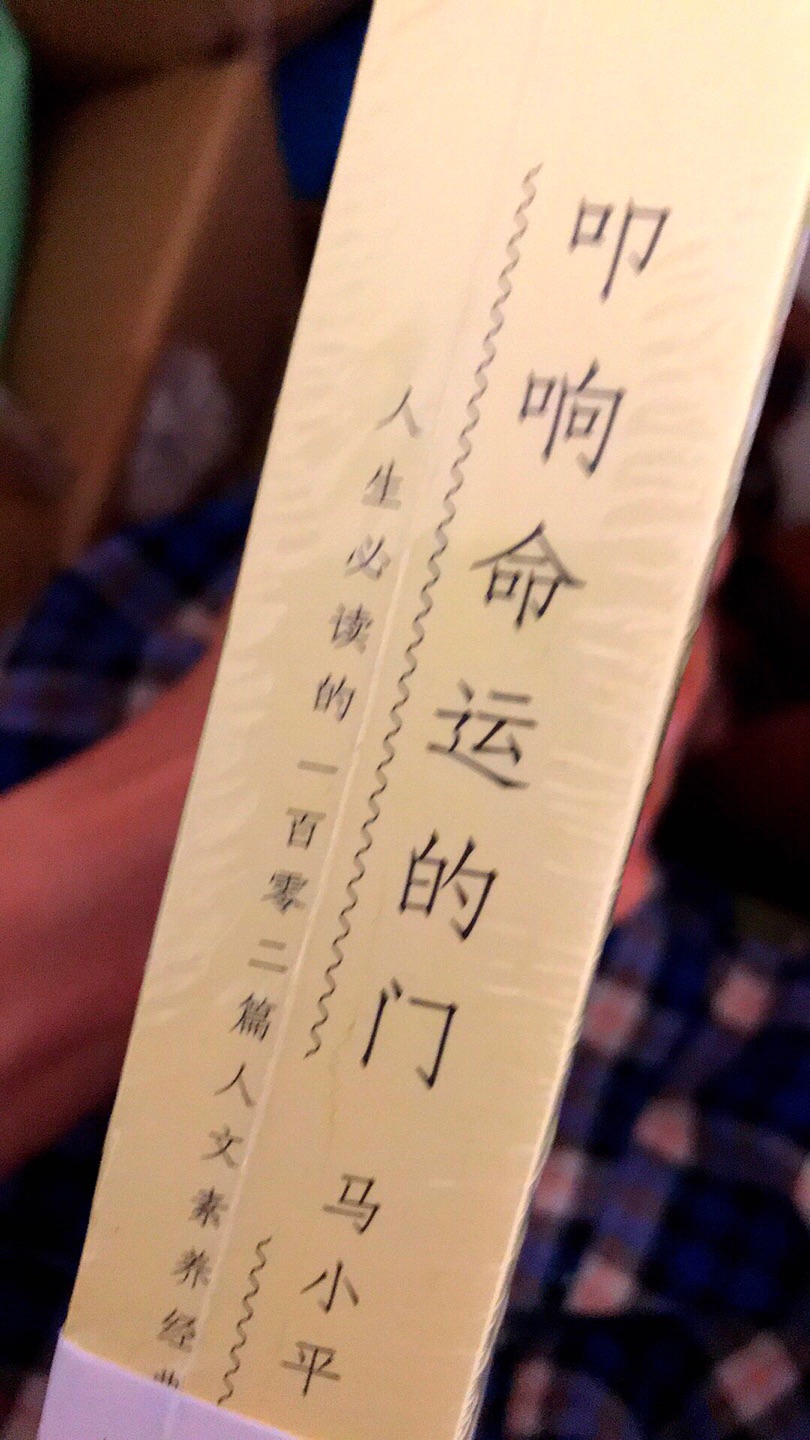 叩响命运的门
马小平
人生必读的一百零二篇人文素养经典